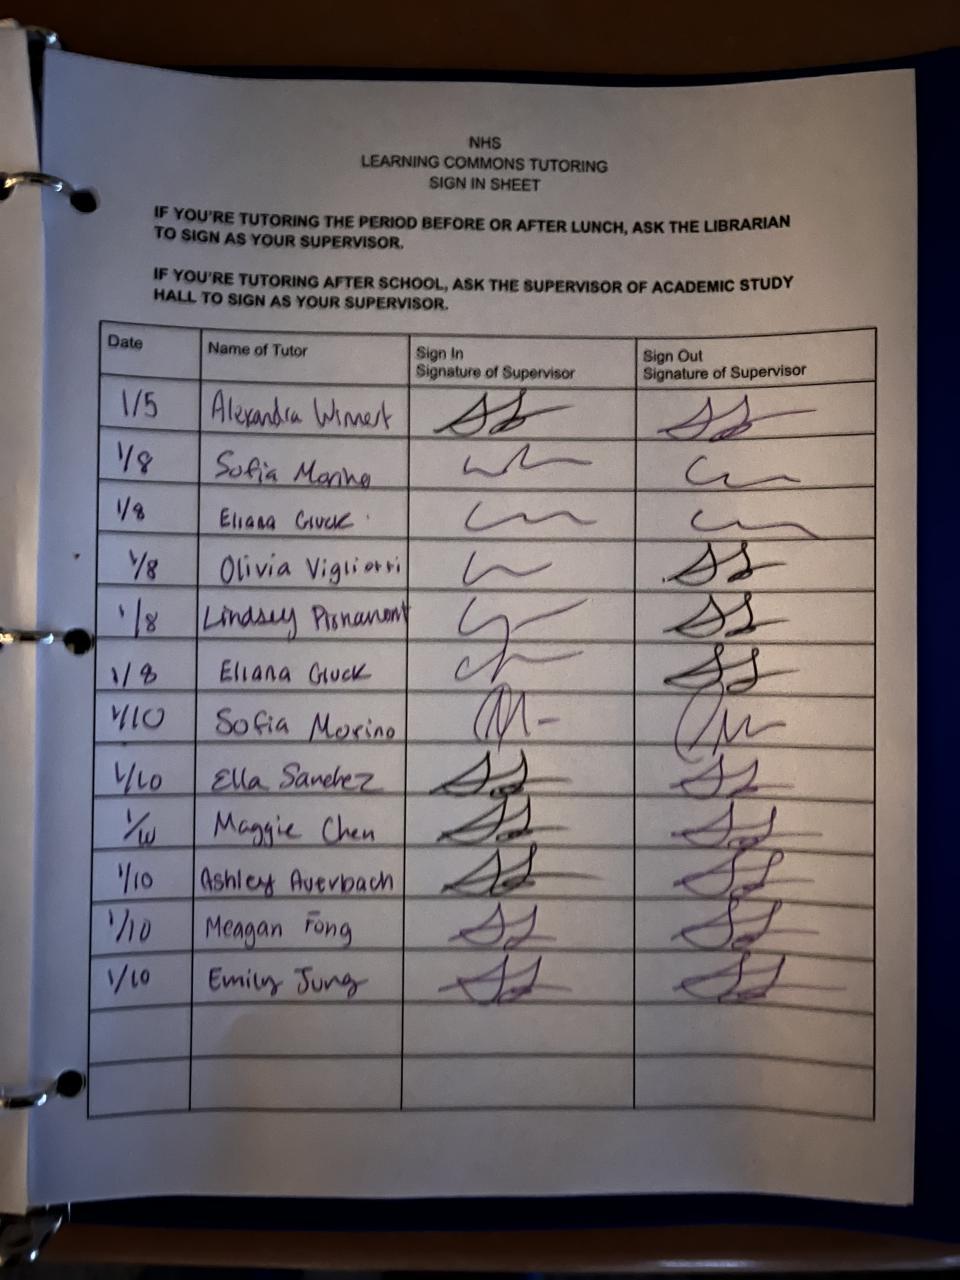 NHS
LEARNING COMMONS TUTORING
SIGN IN SHEET
IF YOU'RE TUTORING THE PERIOD BEFORE OR AFTER LUNCH, ASK THE LIBRARIAN
TO SIGN AS YOUR SUPERVISOR.
IF YOU'RE TUTORING AFTER SCHOOL, ASK THE SUPERVISOR OF ACADEMIC STUDY
HALL TO SIGN AS YOUR SUPERVISOR.
Date Name of Tutor Sign In Sign Out
Signature of Supervisor Signature of Supervisor
1/5 Alexandra
1/8 Sofia
1/8 Eliana Gluck
1/8 Olivia
1/8 Lindsey
1/8 Eliana Gluck
1/10 Sofia Morino
1/10 Ella Sanchez
1/10 Maggie Chen
1/10 Ashley Auerbach
1/10 Meagan Fong
1/10 Emily Jung